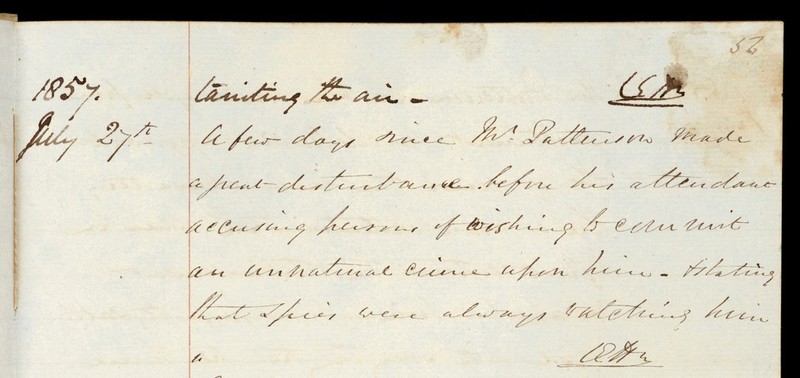 56
1857. tainting the air - CEH
July 27th A few days since Mr. Patterson made
a great disturbance before his attendant
accusing persons of wishing to commit
an unnatural crime upon him - & stating
that spies were always watching him
CEH